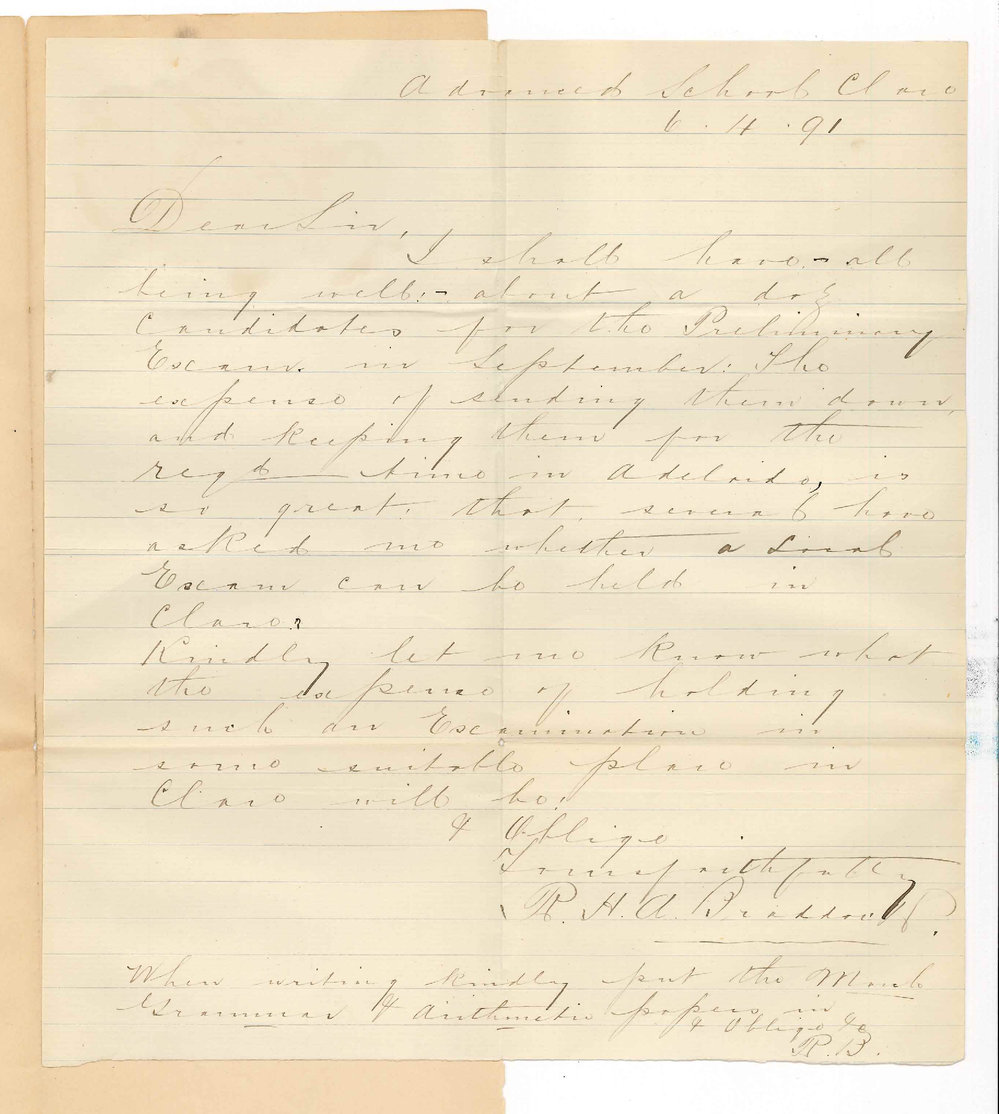 Advanced School Clare
6. 4. 91
Dear Sir,
I shall have - all
being well: - about a doz
Candidates for the Preliminary
Exam. in September: The
expense of sending them down,
and keeping them for the
reqd time in Adelaide, is
so great, that, several have
asked me whether a Local
Exam can be held in
Clare?
Kindly let me know what
the expense of holding
such an Examination in
some suitable place in
Clare will be:
& Oblige
Yours faithfully
R. H. A. Braddock.
When writing kindly put the
Grammar & Arithmetic papers in
& Oblige &c
R. B.